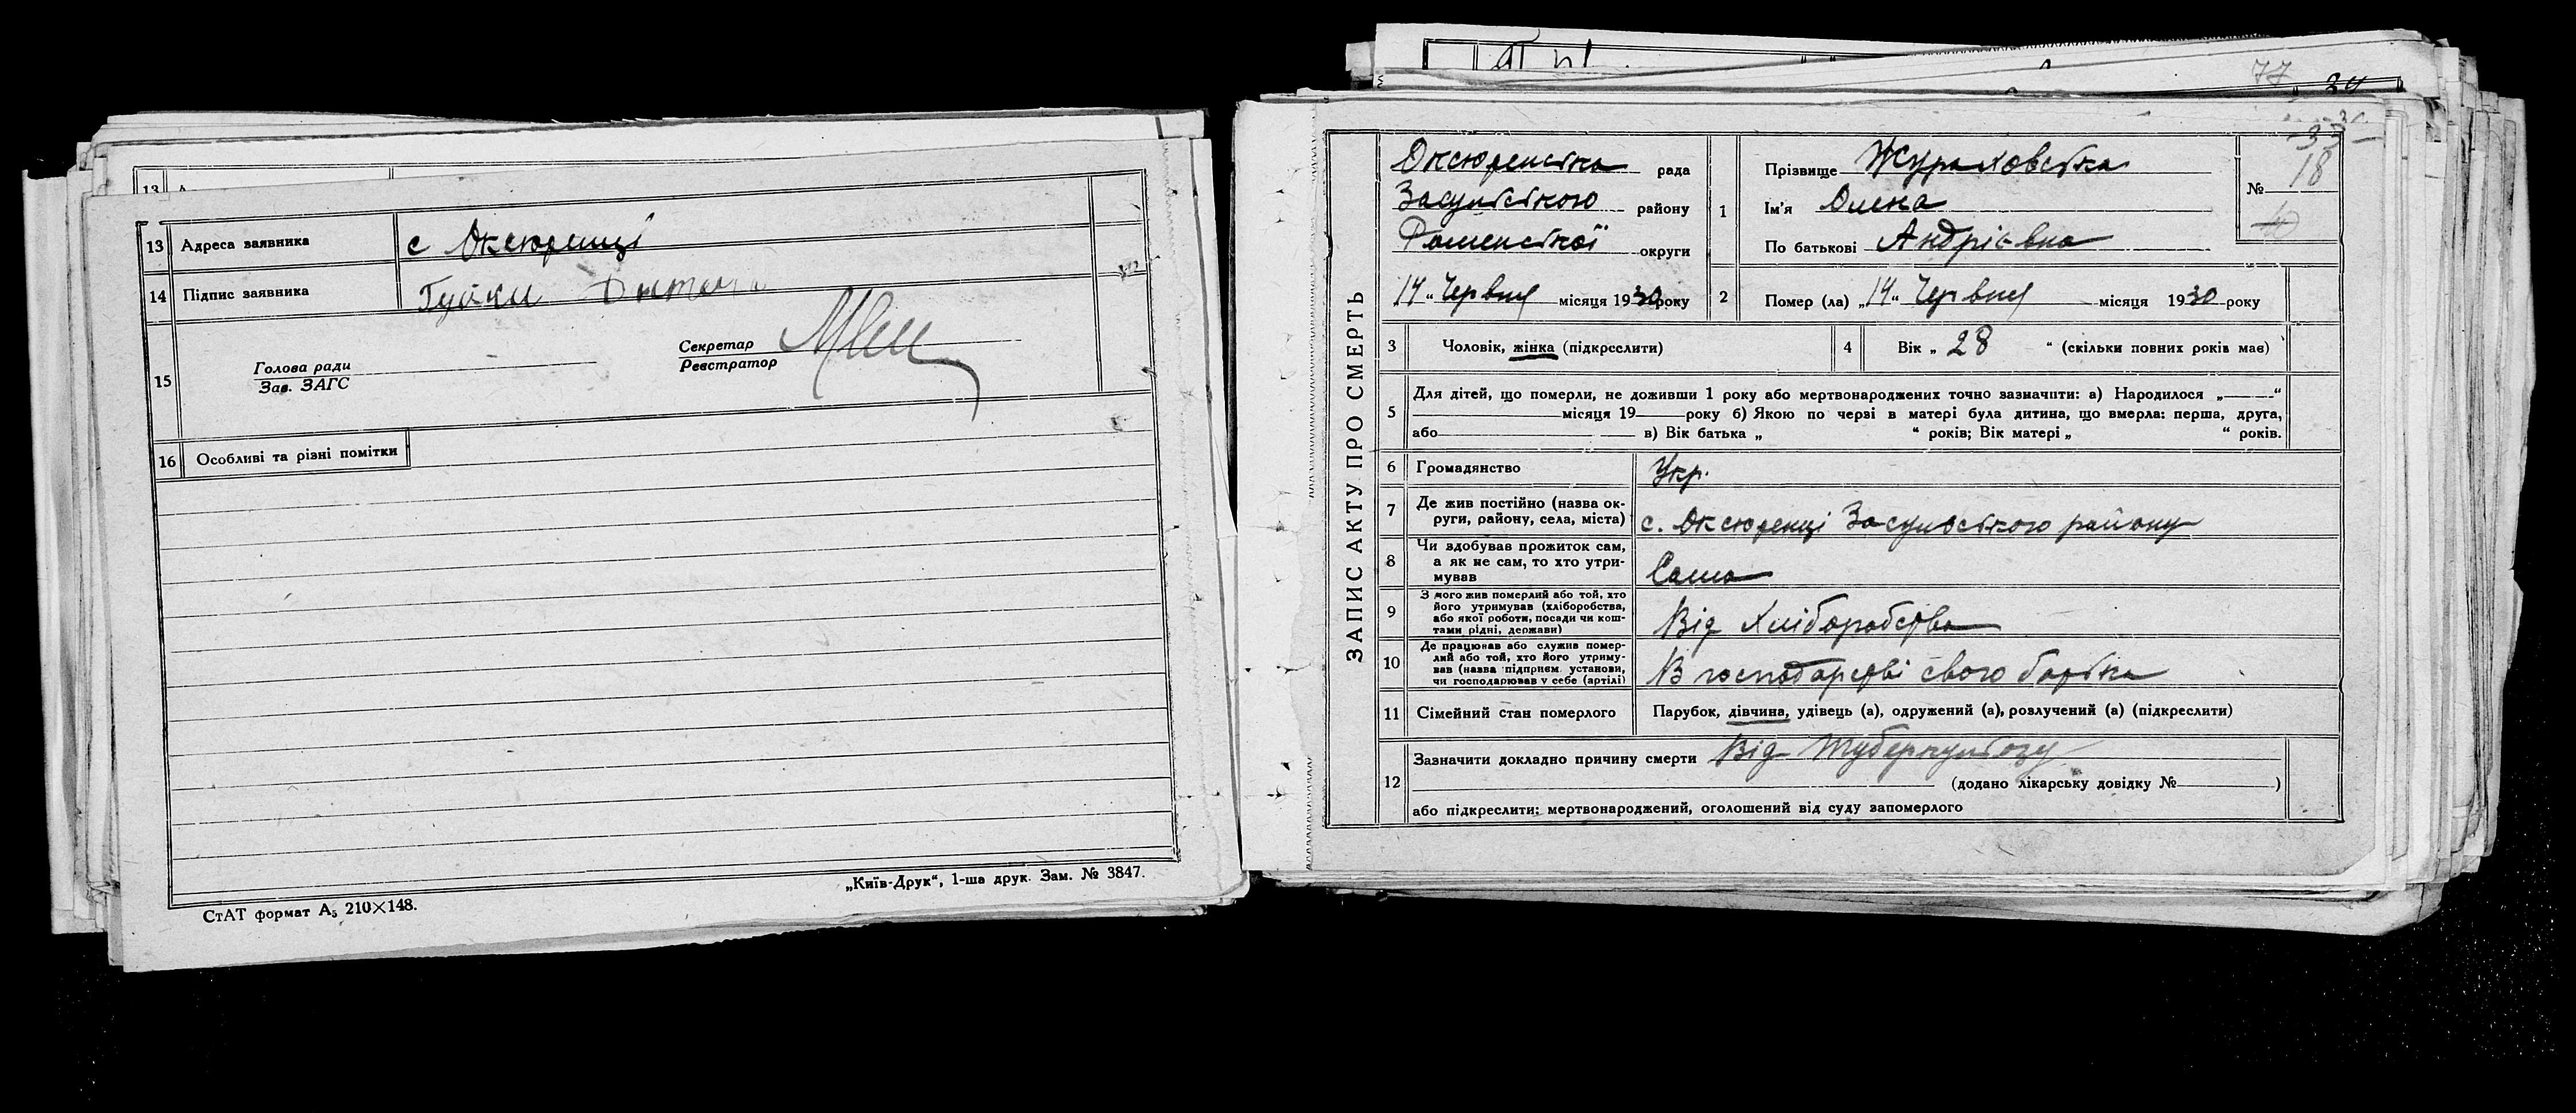 13 Адреса заявника с Оксюренці
14 Підпис заявника Гуйки
15 Голова ради
Зав. ЗАГС
Секретар
Реєстратор
16 Особливі та різні помітки
СтАТ формат А5 210×148.
„Київ-Друк“, 1-ша друк. Зам. № 3847.
77
ЗАПИС АКТУ ПРО СМЕРТЬ
Оксюренська рада
Засульського району
Роменської округи
„14“ Червня місяця 1930 року
1 Прізвище Жураховська
Ім'я Олена
По батькові Андрієвна
№ 18
2 Помер (ла) „14“ Червня місяця 1930 року
3 Чоловік, жінка (підкреслити)
4 Вік „ 28 “ (скільки повних років має)
5 Для дітей, що померли, не доживши 1 року або мертвонароджених точно зазначити: а) Народилося „ “
місяця 19 року б) Якою по черві в матері була дитина, що вмерла: перша, друга,
або в) Вік батька „ “ років; Вік матері „ “ років.
6 Громадянство Укр.
7 Де жив постійно (назва ок-
руги, району, села, міста) с. Оксюренці Засульського району
8 Чи здобував прожиток сам,
а як не сам, то хто утри-
мував Сама
9 З чого жив померлий або той, хто
його утримував (хліборобства,
або якої роботи, посади чи кош-
тами рідні, держави) Від Хліборобства
10 Де працював або служив помер-
лий або той, хто його утриму-
вав (назва підприєм. установи,
чи господарював у себе (артілі) В господарстві свого батька
11 Сімейний стан померлого Парубок, дівчина, удівець (а), одружений (а), розлучений (а) (підкреслити)
12 Зазначити докладно причину смерти Від Туберкульозу
(додано лікарську довідку № )
або підкреслити: мертвонароджений, оголошений від суду запомерлого